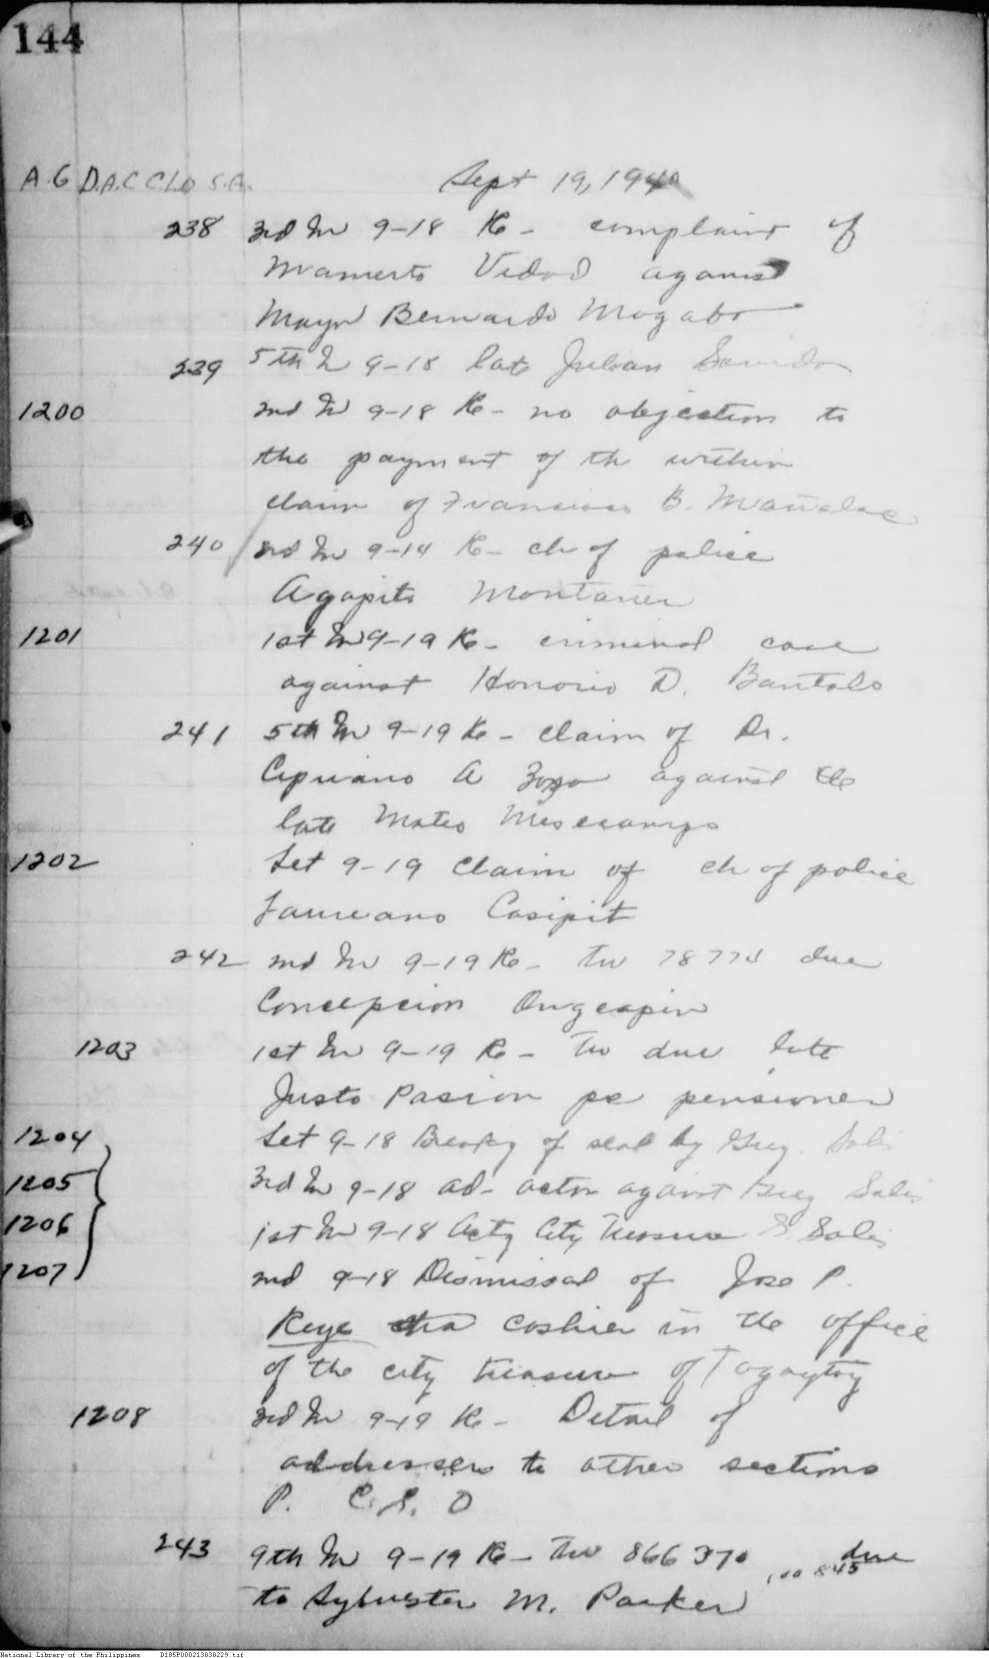 144
A.G D.A.C CLO S.A. Sept 19, 1940
238 3rd In 9-18 Re - complaint of
Mamerto Vidad against
Mayor Bernardo Mogabo
239 5th In 9-18 late Julian
1200 2nd In 9-18 Re - no objection to
the payment of the within
claim of Francisco B. Mañalac
240 3rd In 9-14 Re - ch of police
Agapito Montaner
1201 1st In 9-19 Re - criminal case
against Honorio D. Bantolo
241 5th In 9-19 Re - claim of Dr.
Cipriano A against the
late Mateo
1202 Let 9-19 Claim of ch of police
Laureano Casipit
242 2nd In 9-19 Re - tw 78774 due
Concepcion Ongcapin
1203 1st In 9-19 Re - Tw due late
Justo Pasion ps pensioner
1204 Let 9-18 of seal by Greg. Solis
1205 3rd In 9-18 ad- action against Greg Solis
1206 1st In 9-18 Actg City Treasurer G Solis
1207 2nd 9-18 Dismissal of Jose P.
Reye cashier in the office
of the city treasurer of Tagaytay
1208 3rd In 9-19 Re - Detail of
addressers to other sections
P. C. S. O
243 9th In 9-19 Re - Tw 866370 due
to Sylvester M. Parker
National Library of the Philippines D185P000213838229.tif